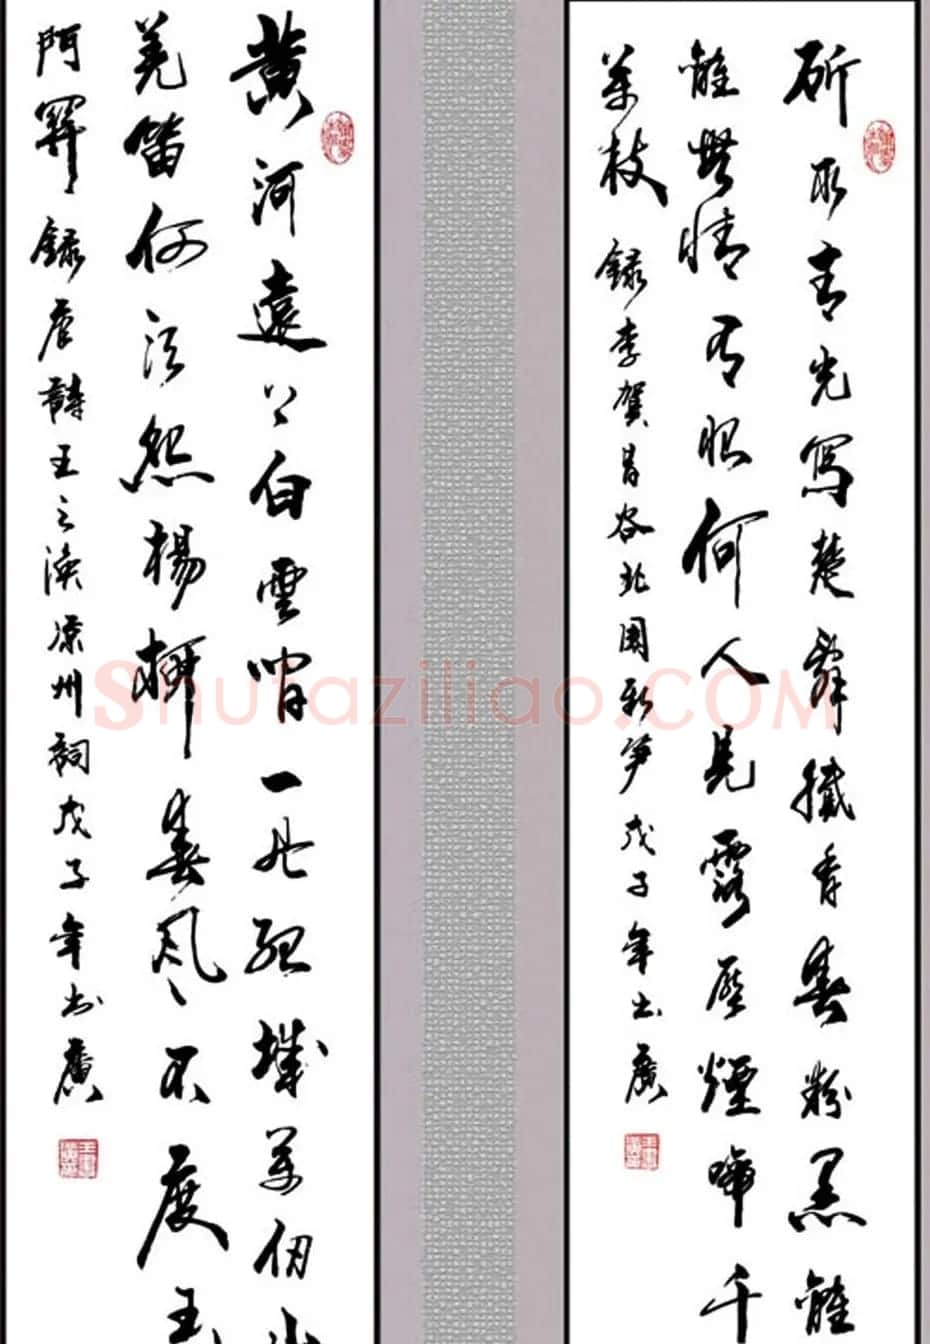 斫取青光寫楚辭膩香春粉黑離
離無情有恨何人見露壓煙啼千
萬枝 錄李賀昌谷北園新笋戊子年书廣
黃河遠上白雲間一片孤城萬仞山
羌笛何須怨楊柳春風不度玉
門關 錄唐詩王之渙凉州詞戊子年书廣
Shufaziliao.COM